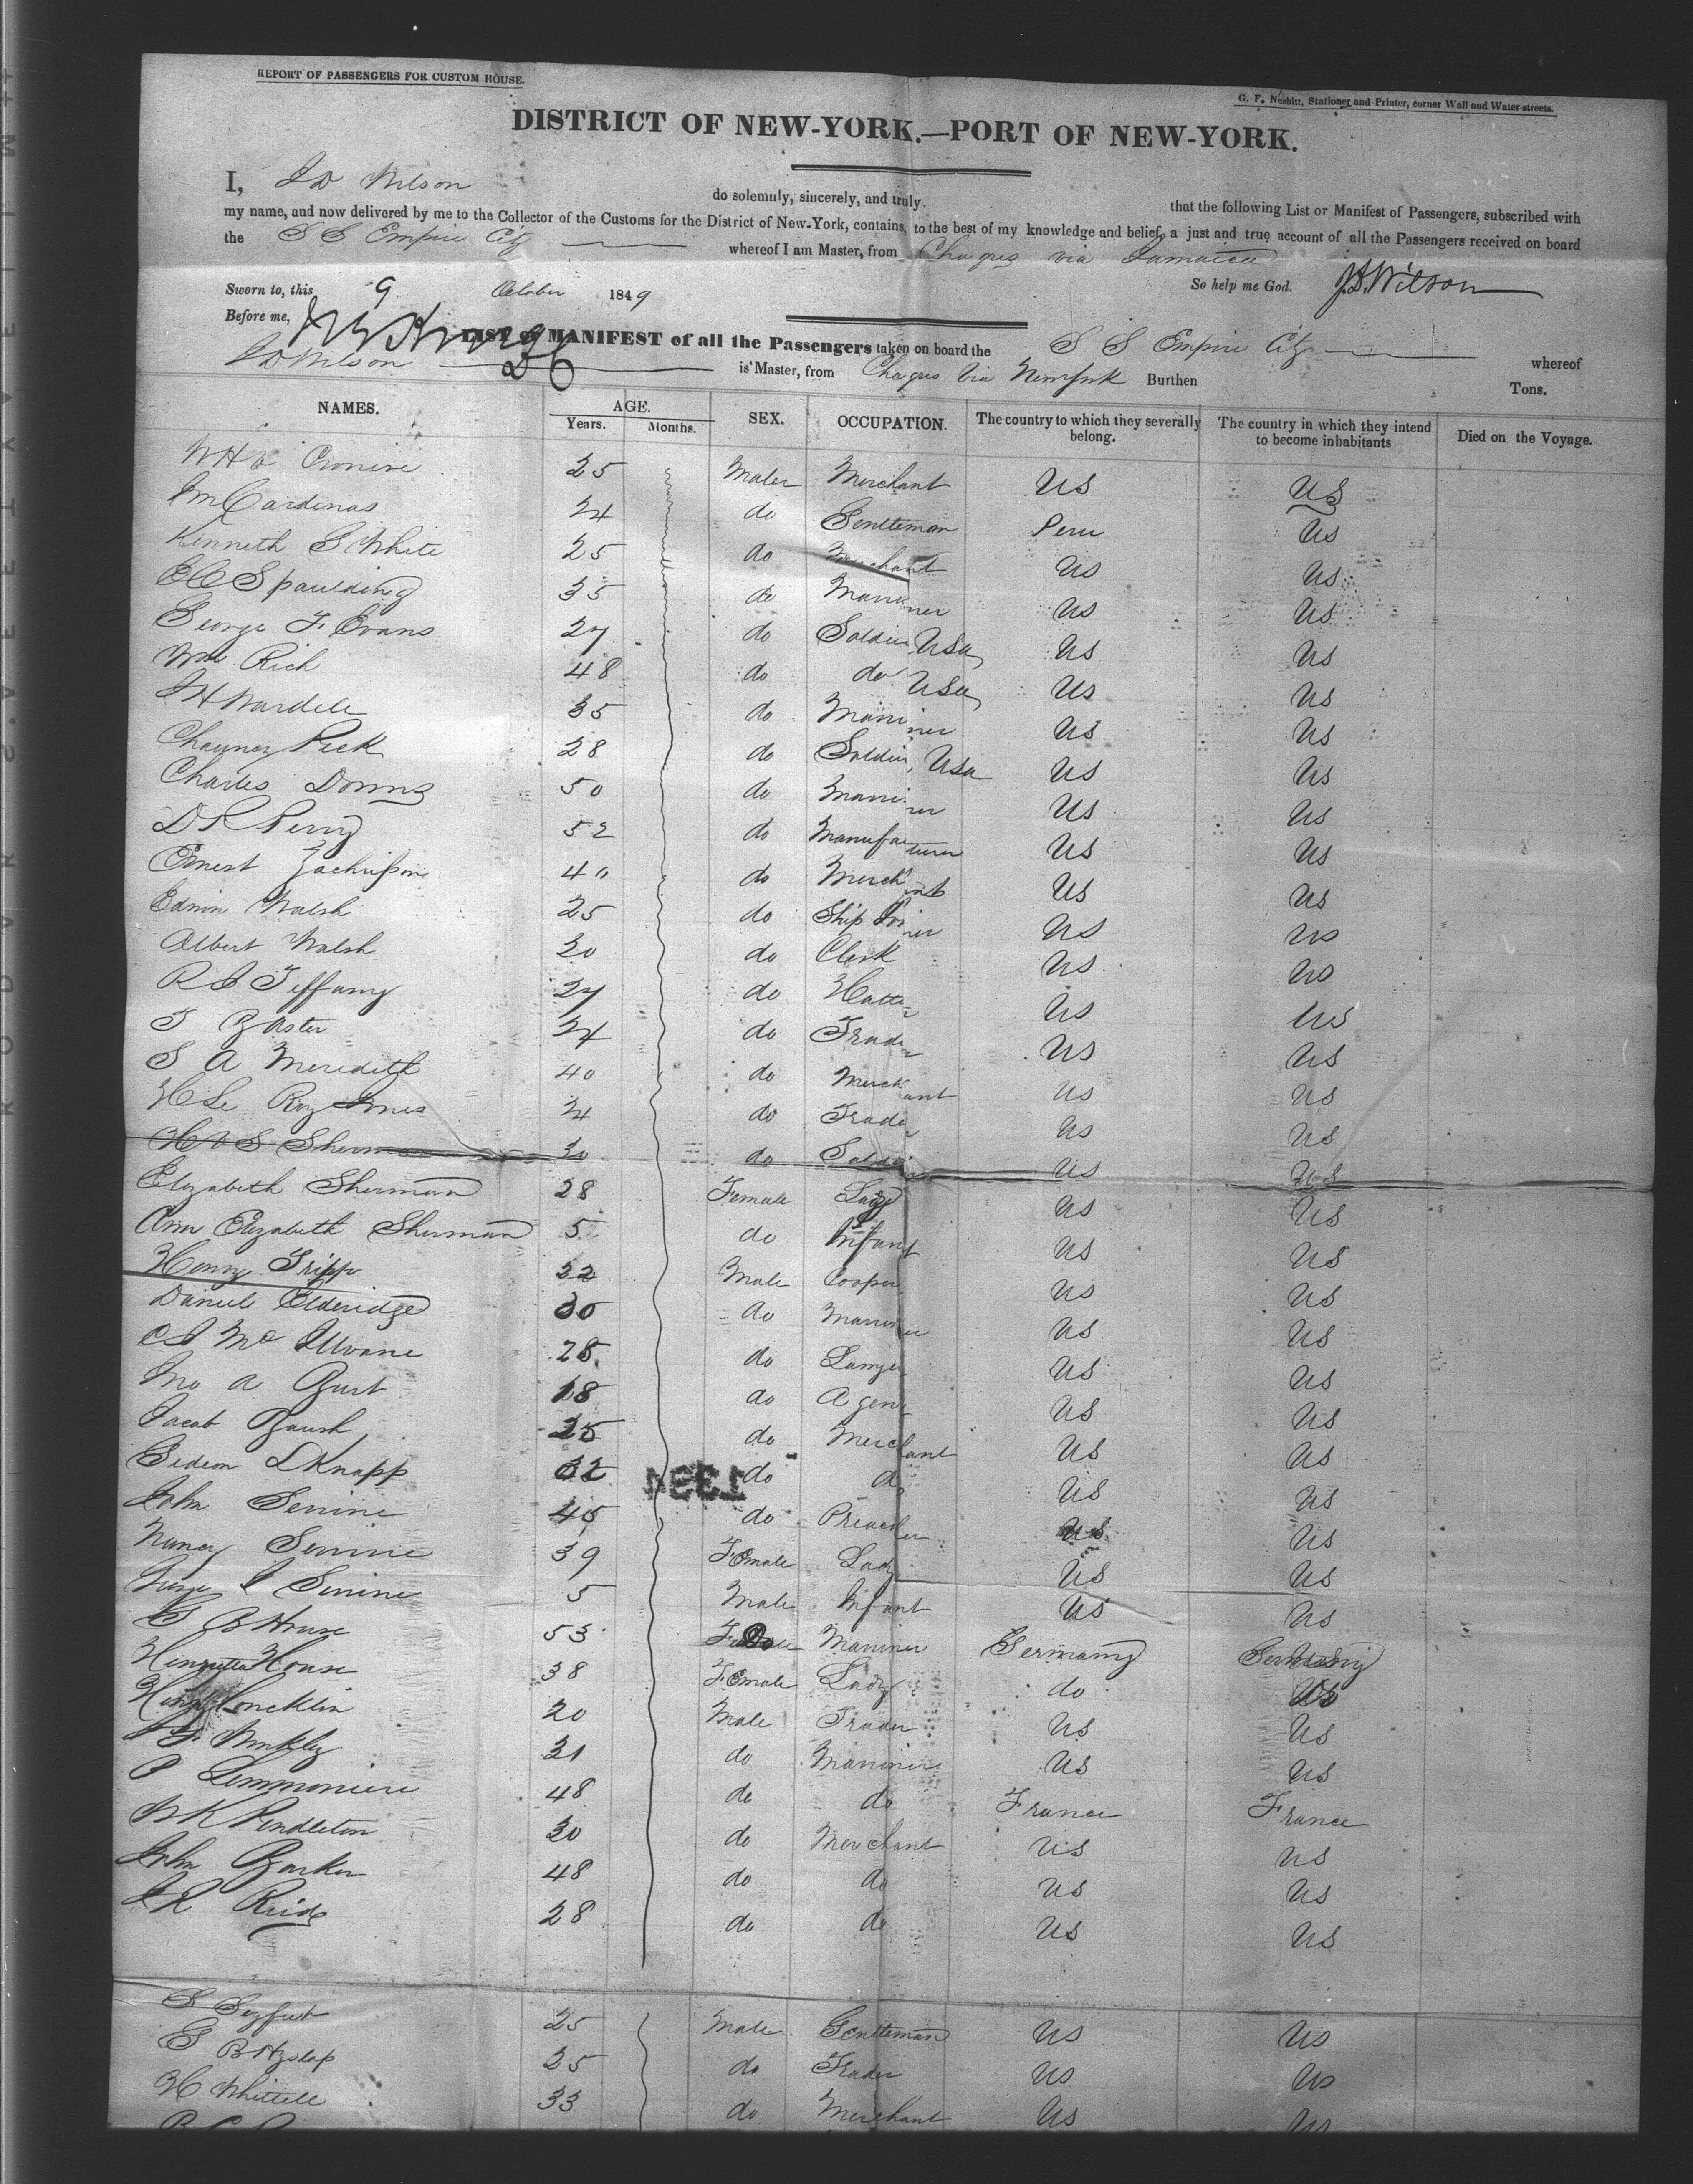 REPORT OF PASSENGERS FOR CUSTOM HOUSE.
G. F. Nesbitt, Stationer and Printer, corner Wall and Water-streets.
DISTRICT OF NEW-YORK.—PORT OF NEW-YORK.
I, J D Wilson do solemnly, sincerely, and truly that the following List or Manifest of Passengers, subscribed with
my name, and now delivered by me to the Collector of the Customs for the District of New-York, contains, to the best of my knowledge and belief, a just and true account of all the Passengers received on board
the S S Empire City whereof I am Master, from Chagres via Jamaica
Sworn to, this 9 October 1849 So help me God. J.D. Wilson
Before me,
LIST or MANIFEST of all the Passengers taken on board the S S Empire City whereof
J D Wilson is Master, from Chagres via New York Burthen Tons.
NAMES. AGE. Years. Months. SEX. OCCUPATION. The country to which they severally belong. The country in which they intend to become inhabitants Died on the Voyage.
25 Male Merchant US US
Cardenas 24 do Gentleman Peru US
Kenneth S White 25 do Merchant US US
E C Spaulding 35 do Mariner US US
George F Evans 27 do Soldier USa US US
Wm Rich 48 do do USa US US
J H Wardele 35 do Mariner US US
Chauncy Peck 28 do Soldier, USa US US
Charles Downs 50 do Mariner US US
D Perry 52 do Manufacturer US US
Ernest Zachrisson 40 do Merchant US US
Edwin Walsh 25 do Ship Joiner US US
Albert Walsh 20 do Clerk US US
R J Tiffany 27 do Hatter US US
24 do Trader US US
S A Meredith 40 do Merchant US US
H Le Roy Jones 24 do Trader US US
Sherman 30 do Soldier US US
Elizabeth Sherman 28 Female Lady US US
Ann Elizabeth Sherman 5 do Infant US US
Henry Tripp 22 Male Cooper US US
Daniel Elderidge 30 do Mariner US US
C J McIlvane 28 do Lawyer US US
Jno A Burt 18 do Agent US US
Jacob Baush 25 do Merchant US US
Gideon L Knapp 32 do do US US
John Serrine 45 do Preacher US US
Nancy Serrine 39 Female Lady US US
Serrine 5 Male Infant US US
G B House 53 Do Mariner Germany Germany
Henrietta House 38 Female Lady do US
Henry Concklin 20 Male Trader US US
31 do Mariner US US
P Lemmoniere 48 do do France France
W K Pendleton 30 do Merchant US US
John Barker 48 do do US US
28 do do US US
S Seyfert 25 Male Gentleman US US
25 do Trader US US
H Whittell 33 do Merchant US US